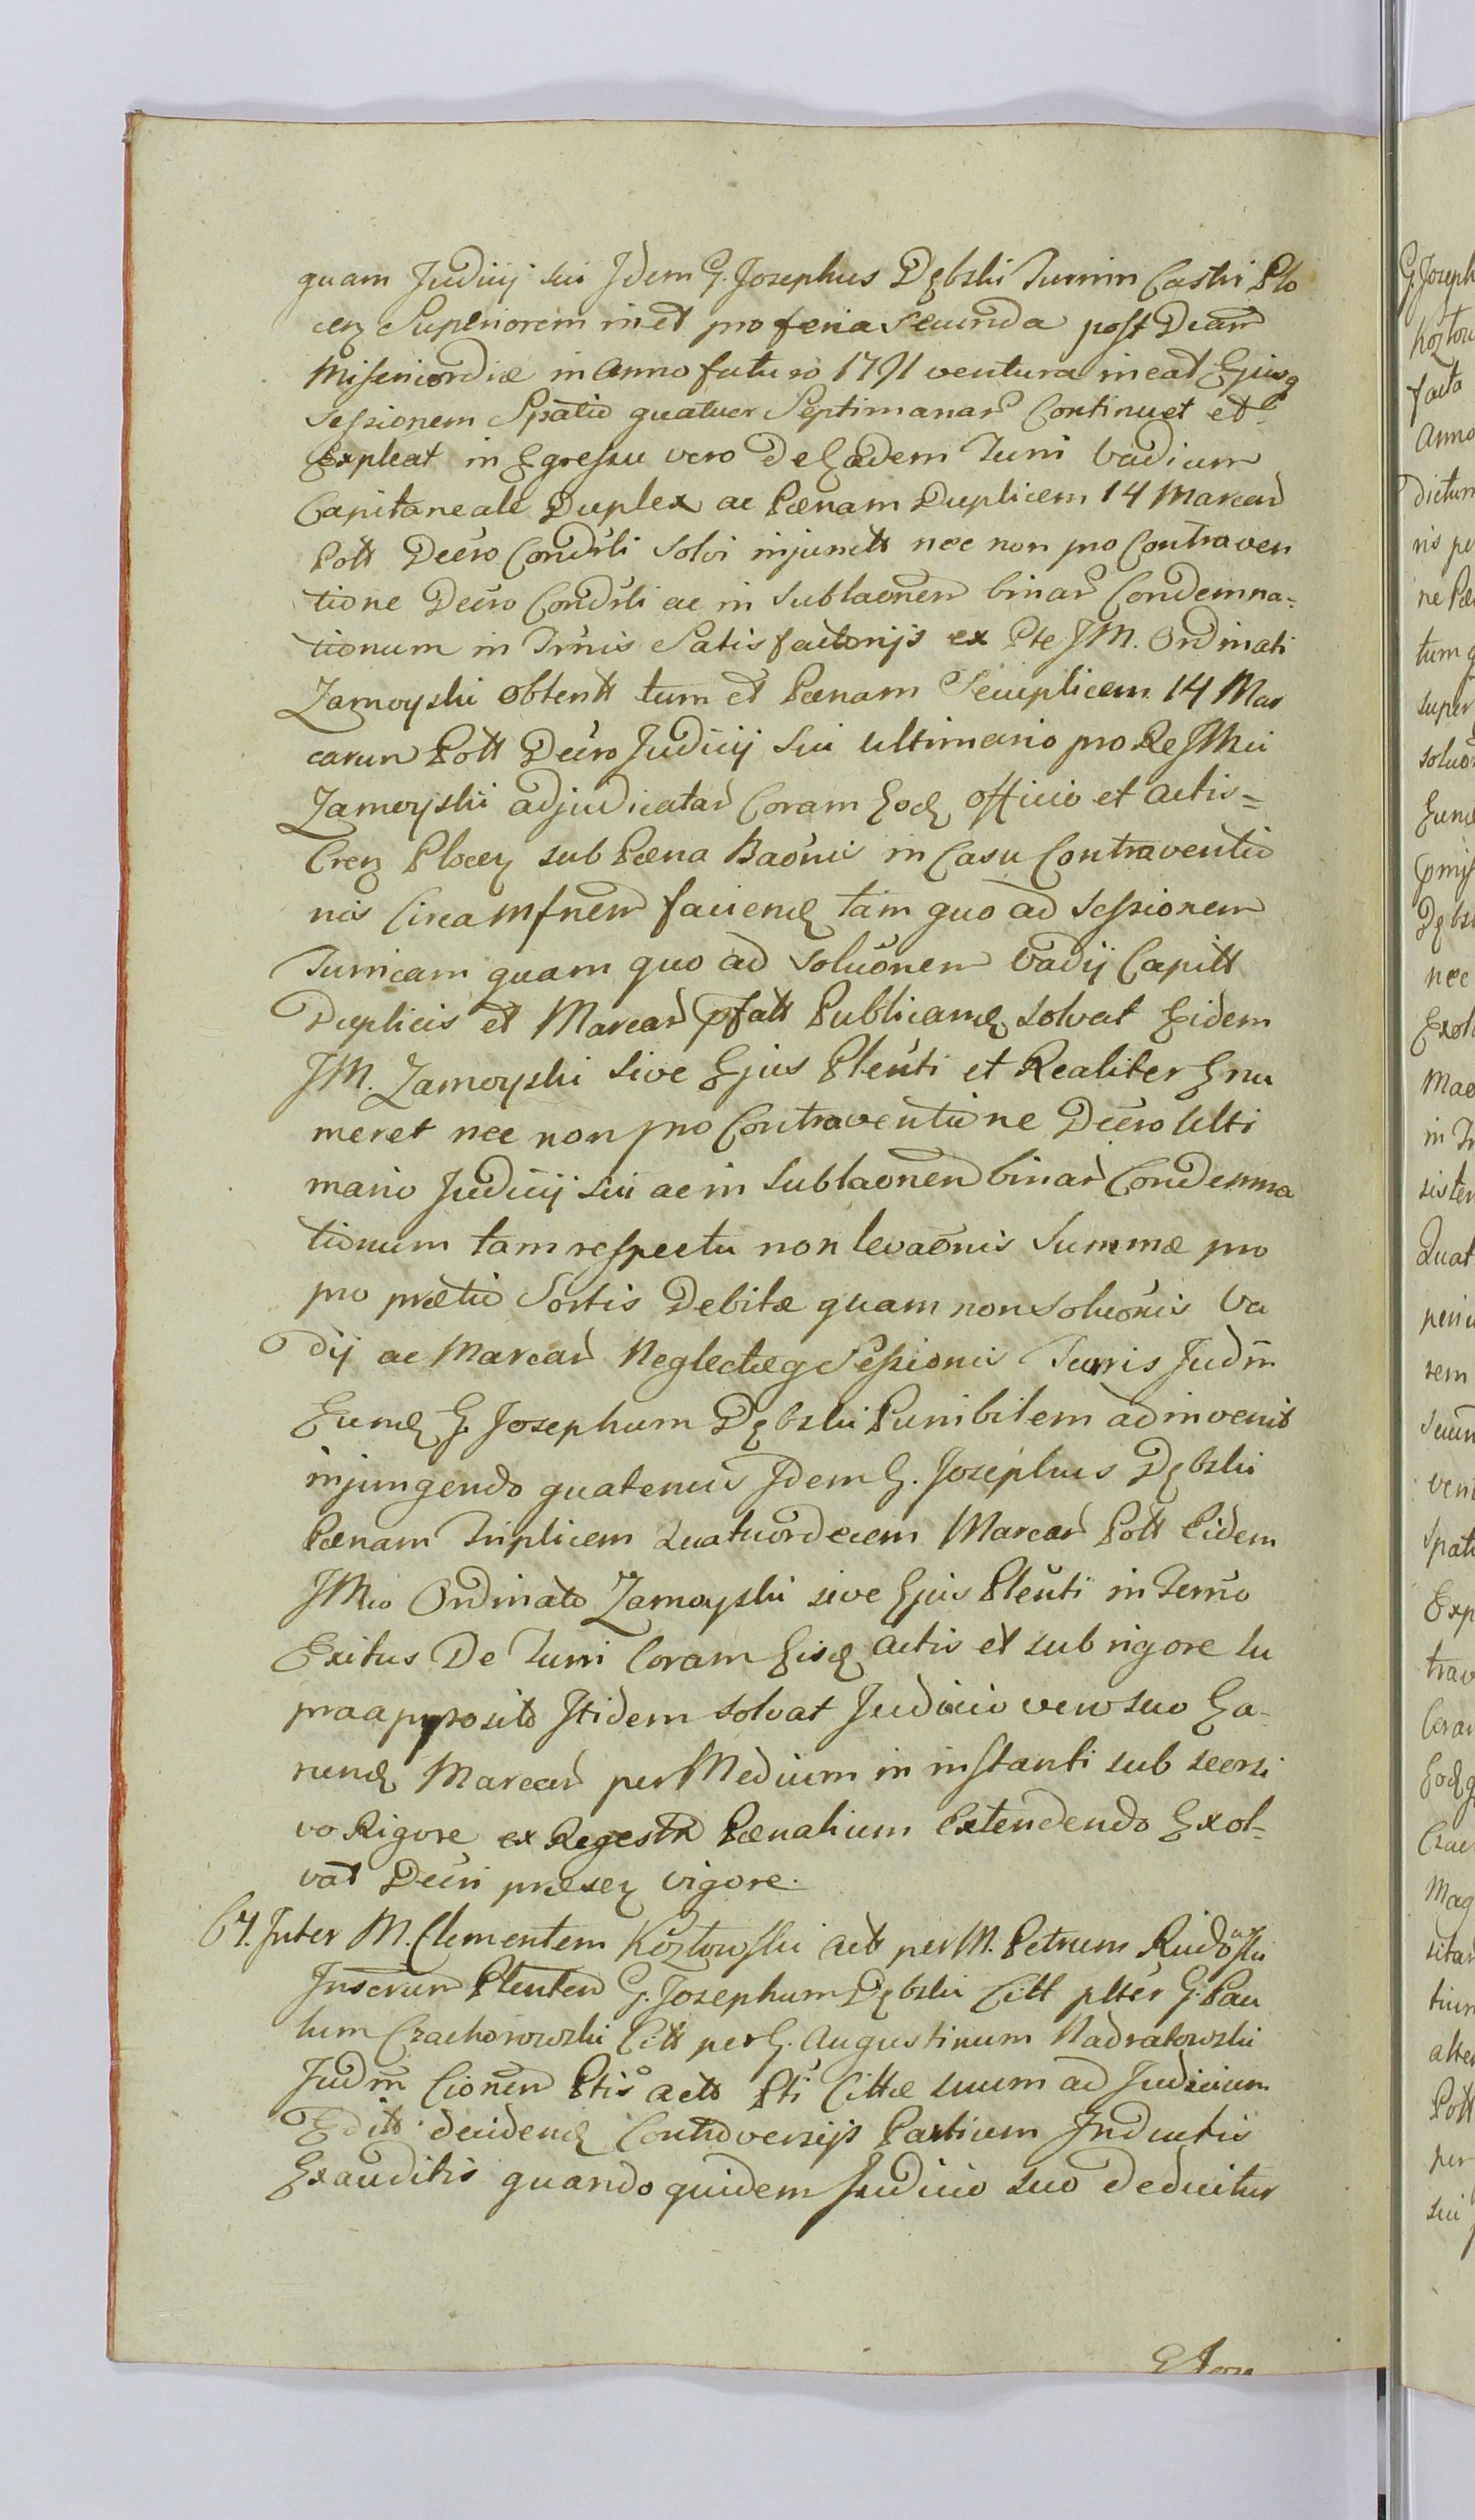 quam Judicij sui Idem G. Josephus Dębski Turrim Castri Plo
cen Superiorem in et pro feria Secunda post Dcam
Misericordiæ in Anno futuro 1791 ventura ineat Ejusq
Sessionem Spatio quatuor Septimanar Continuet et
Expleat in Egressu vero de Eadem Turri Vadium
Capitaneale Duplex ac Pænam Duplicem 14 Marcar
Poll Decro Condsli solvi injunctt nec non pro Contraven
tione Decro Condsli ac in Sublaonem binar Condemna=
tionum in Trnis Satisfactorijs ex Pte JM. Ordinati
Zamoyski Obtentt tum et Pænam Semplicem 14 Mar
carum Poll Decro Judicij Sui Ultimario pro Re JMci
Zamoyski adjudicatar Coram Eod officio et Actis=
Cren Plocen sub Pæna Baonis in Casu Contraventio
nis Circa mfnem faciend tam quo ad Sessionem
Turricam quam quo ad Soluonem Vadij Capitt
Duplicis et Marcar pfatt Publicand solvat Eidem
JM. Zamoyski sive Ejus Plenti et Realiter Enu
meret nec non pro Contraventione Decro Ulti
mario Judicij sui ac in Sublaonem binar Condemna
tionum tam respectu non levaonis Summæ pro
pro prætio Sortis Debitæ quam non Soluonis Va
dij ac Marcar Neglectæq Sessionis Turris Judm
Eund G. Josephum Dębski Punibilem adinvenit
injungendo quatenus Idem G. Josephus Dębski
Pænam Triplicem Quatuordecem Marcar Poll Eidem
JMco Ordinato Zamoyski sive Ejus Plenti in Termo
Exitus De Turri Coram Eisd Actis et sub rigore su
praapposito Itidem solvat Judicio vero suo Ea-
rund Marcar per Medium in instanti sub seorsi
vo Rigore ex Regestr Pænalium Extendendo Exol-
vat Decri præsen vigore.
67. Inter M. Clementem Kozłowski Act per M. Petrum Rudowski
Juserum Plentem G. Josephum Dębski Citt plter G. Pau
lum Czachorowski Citt per G. Augustinum Nadratowski
Judm Cionem Ptis Actt Pti Cittæ suum ad Judicium
Editt decidend Controversijs Partium Inductis
Exauditis quandoquidem Judicio suo deducitur